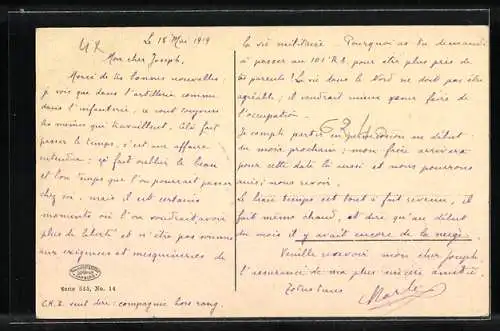 Le 18 Mai 1919
Mon cher Joseph,
Merci de tes bonnes nouvelles;
je vois que dans l'artillerie comme
dans l'infanterie, ce sont toujours
les mêmes qui travaillent. Cela fait
passer le temps, c'est une affaire
entendue; ça fait oublier le beau
et bon temps que l'on pourrait passer
chez soi, mais il est certains
moments où l'on voudrait avoir
plus de liberté et n'être pas soumis
aux exigences et mesquineries de
Serie 555, No. 14
C.H.R. veut dire: compagnie hors-rang.
la vie militaire. Pourquoi as-tu demandé
à passer au 101e R.A. pour être plus près de
tes parents? La vie dans le Nord ne doit pas être
agréable; il vaudrait mieux faire de
l'occupation.
Je compte partir en permission au début
du mois prochain; mon frère arrivera
pour cette date là aussi et nous pourrons
ainsi nous revoir.
Le beau temps est tout à fait revenu, il
fait même chaud, et dire qu'au début
du mois il y avait encore de la neige.
Veuille recevoir mon cher Joseph,
l'assurance de ma plus sincère amitié.